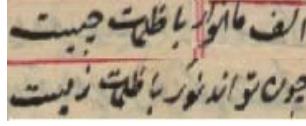 الف مالوار با ظلمات چیست
چون تواند نور با ظلمات زیست